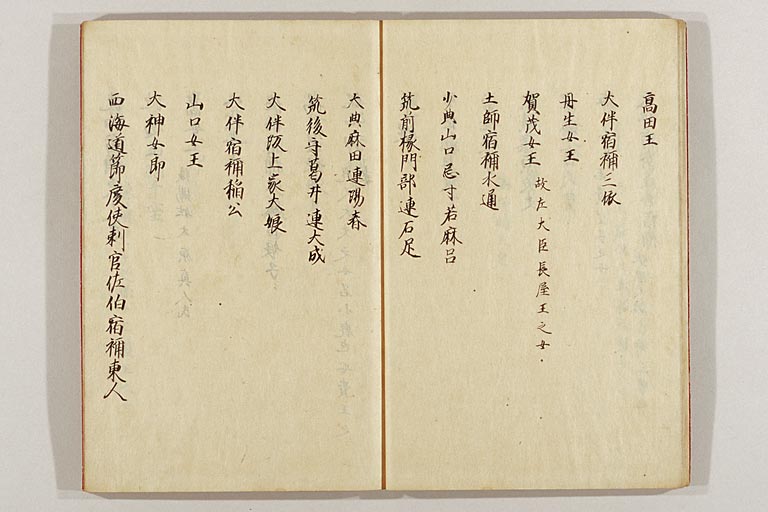 高田王
大伴宿祢三依
丹生女王
賀茂女王 故左大臣長屋王之女
土師宿祢水通
少典山口忌寸若麻呂
筑前掾門部連石足
大典麻田連陽春
筑後守葛井連大成
大伴坂上家大娘
大伴宿祢稲公
山口女王
大神女郎
西海道節度使判官佐伯宿祢東人